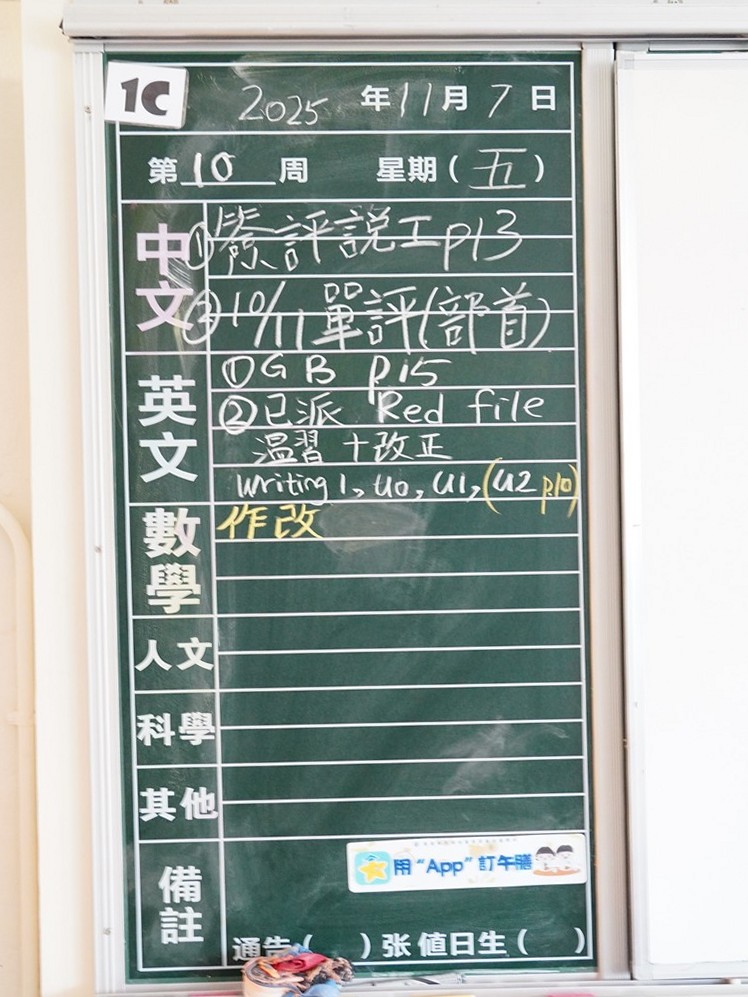 1C
2025 年 11 月 7 日
第 10 周 星期 ( 五 )
中文
① 簽評說工 p13
② 10/11 單評(部首)
英文
① GB p15
② 已派 Red file
溫習 + 改正
Writing 1, U0, U1, (U2 p.10)
數學
作改
人文
科學
其他
備註
用 "App" 訂午膳
通告 ( ) 张 值日生 ( )